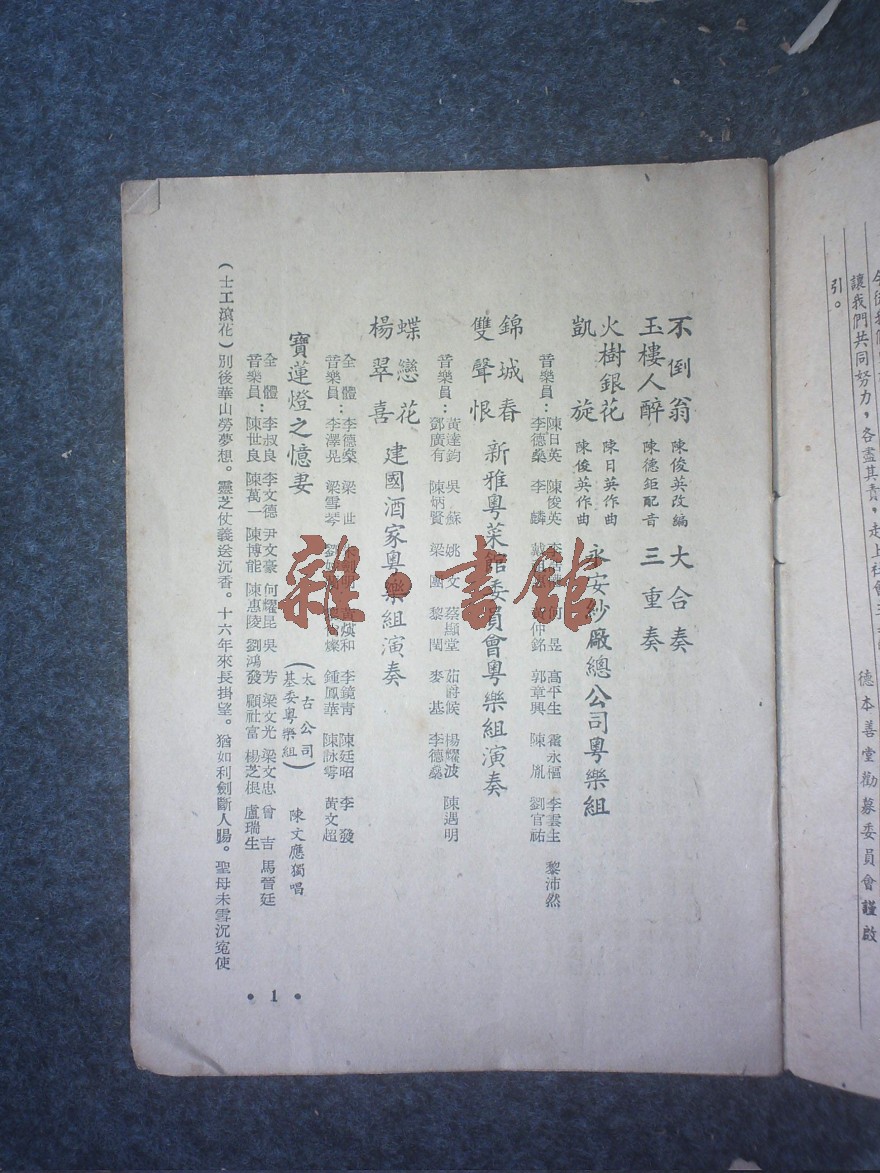 今
讓我們共同努力，各盡其責，走上社會主
引。
德本善堂勸募委員會謹啟
不倒翁 陳俊英改編 大合奏
玉樓人醉 陳德鉅配音 三重奏
火樹銀花 陳日英作曲
凱旋 陳俊英作曲
永安紗廠總公司粵樂組
音樂員：
陳日英 陳俊英 何昱 高平生 霍永樞 李雲生 黎沛然
李德燊 李麟 仲銘 郭章興 陳胤 劉官祐
錦城春
雙聲恨
新雅粵菜館委員會粵樂組演奏
音樂員：
黃達鈞 吳蘇 姚文 蔡顯堂 茹爵候 楊耀波 陳遇明
鄧廣有 陳炳賢 梁團 黎閏 麥基 李德燊
蝶戀花
楊翠喜
建國酒家粵樂組演奏
全體音樂員：
李德燊 梁世 明 煥和 李鏡青 陳廷昭 李發
李澤晃 梁雪琴 劉 燦 鍾鳳華 陳詠雩 黃文超
寶蓮燈之憶妻
（太古公司基委粵樂組）
陳文應獨唱
全體音樂員：
李叔良 李文德 尹文豪 何耀昆 吳芳 梁文光 梁文忠 曾吉 馬晉廷
陳世良 陳萬一 陳博能 陳惠陵 劉鴻發 顧社富 楊芝根 盧瑞生
（士工滾花）別後華山勞夢想。靈芝仗義送沉香。十六年來長掛望。猶如利劍斷人腸。聖母未雪沉寃使
• 1 •
雜•書館